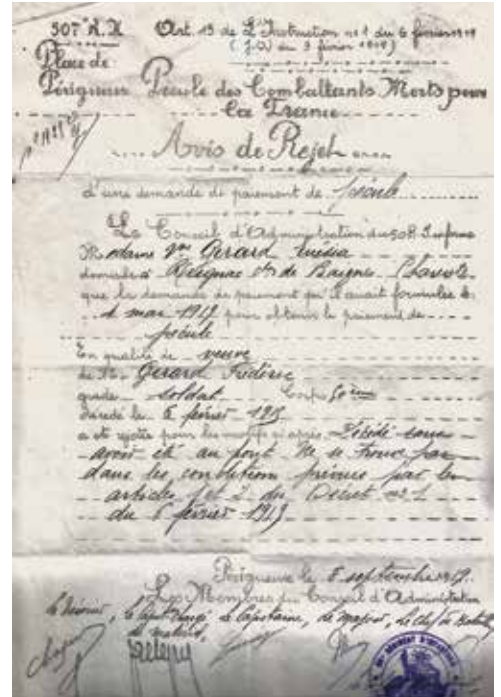 507 R.I. Art. 13 de L'Instruction n° 1 du 6 février 1919
(J.O. du 9 février 1919)
Place de
Périgueux Pécule des Combattants Morts pour
la France
Avis de Rejet
d'une demande de paiement de pécule
Le Conseil d'Administration du informe
Madame Vve Gerard
domiciliée à Reignac de Baignes Charente
que la demande de paiement qu'il avait formulée le
4 mai 1919 pour obtenir le paiement de
pécule
En qualité de veuve
de M. Gerard Frédéric
grade soldat Corps 50ème
décédé le 5 février 1915
a été rejetée pour les motifs ci après Décédé sans
avoir été au front Ne se trouve pas
dans les conditions prévues par les
articles 1 et 2 du Décret n° 1
du 6 février 1919
Périgueux le 5 septembre 19
Les Membres du Conseil d'Administration
le Trésorier, le Capt. chargé le Capitaine, le major, Le chef de Bataillon
du matériel,